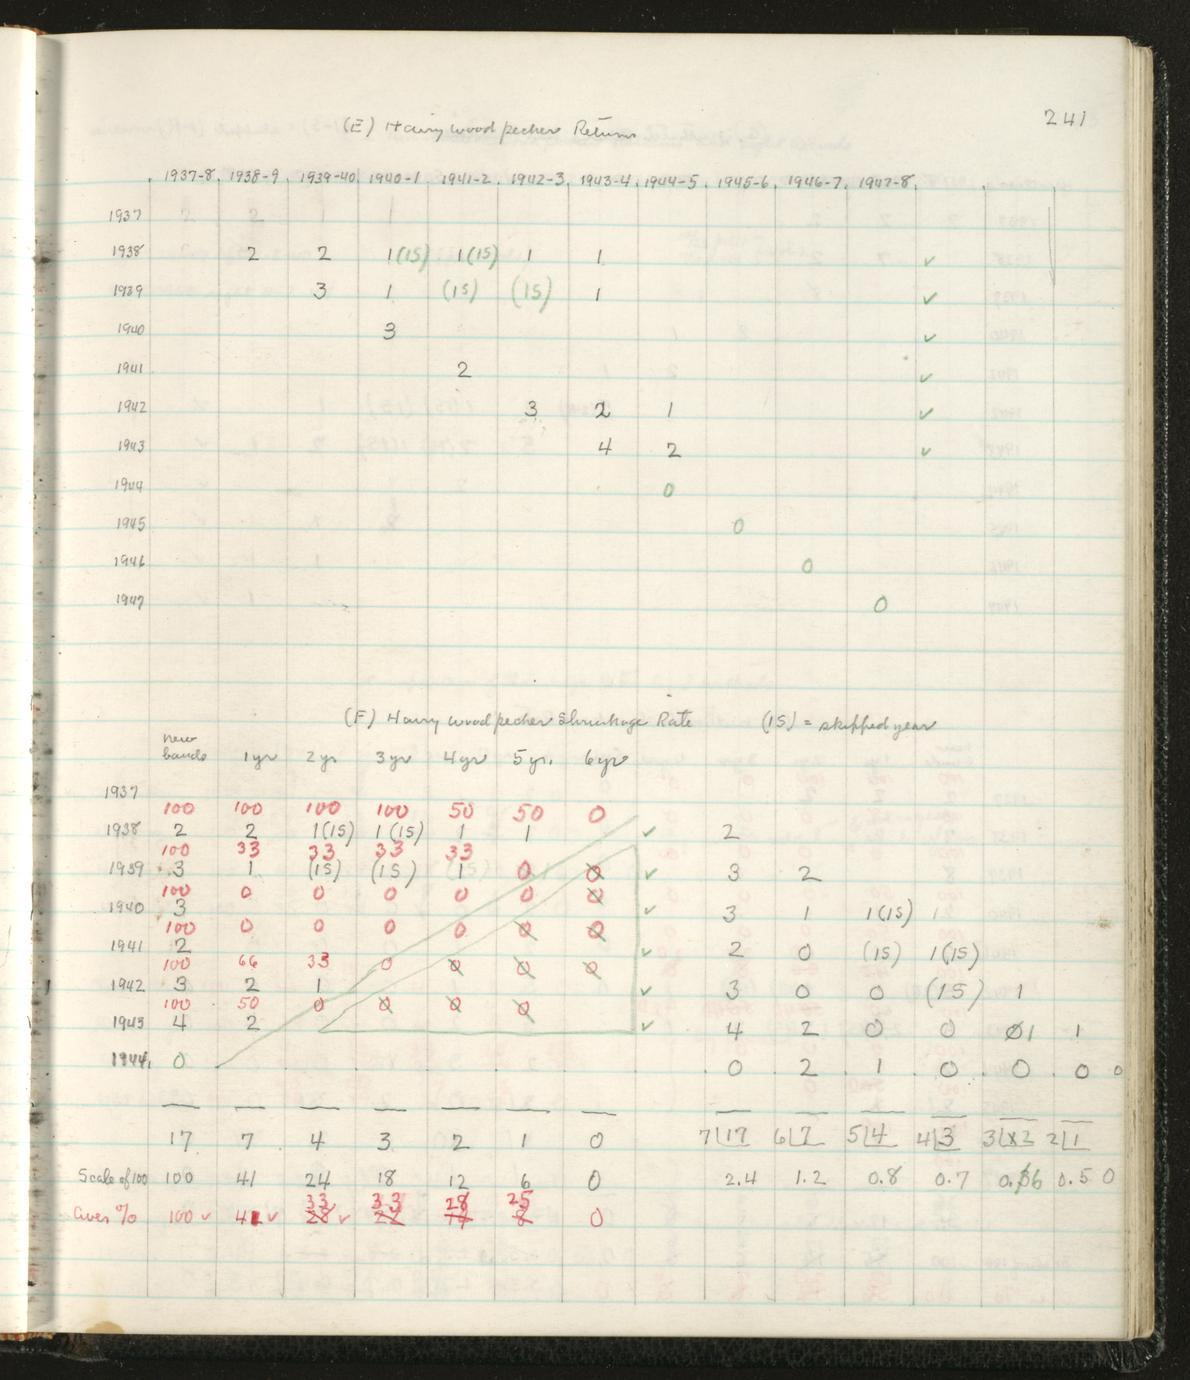 241
(E) Hairy woodpecker Returns
1937-8 1938-9 1939-40 1940-1 1941-2 1942-3 1943-4 1944-5 1945-6 1946-7 1947-8
1937
1938 2 2 1(15) 1(15) 1 1 ✓
1939 3 1 (15) (15) 1 ✓
1940 3 ✓
1941 2 ✓
1942 3 2 1 ✓
1943 4 2 ✓
1944 0
1945 0
1946 0
1947 0
(F) Hairy woodpecker Shrinkage Rate (15) = skipped year
new
bands 1yr 2yr 3yr 4yr 5yr. 6yr
1937
100 100 100 100 50 50 0
1938 2 2 1(15) 1(15) 1 1 ✓ 2
100 33 33 33 33
1939 3 1 (15) (15) 1 0 0 ✓ 3 2
100 0 0 0 0 0 0
1940 3 ✓ 3 1 1(15)
100 0 0 0 0 0 0
1941 2 ✓ 2 0 (15) 1(15)
100 66 33 0 0 0 0
1942 3 2 1 ✓ 3 0 0 (15) 1
100 50 0 0 0 0
1943 4 2 ✓ 4 2 0 0 01 1
1944 0 0 2 1 0 0 0 0
17 7 4 3 2 1 0 7|17 6|7 5|4 4|3 3|2 2|1
Scale of 100 100 41 24 18 12 6 0 2.4 1.2 0.8 0.7 0.6 0.5 0
33 33 28 25
Aver % 100 ✓ 41 ✓ 28 ✓ 22 8 0